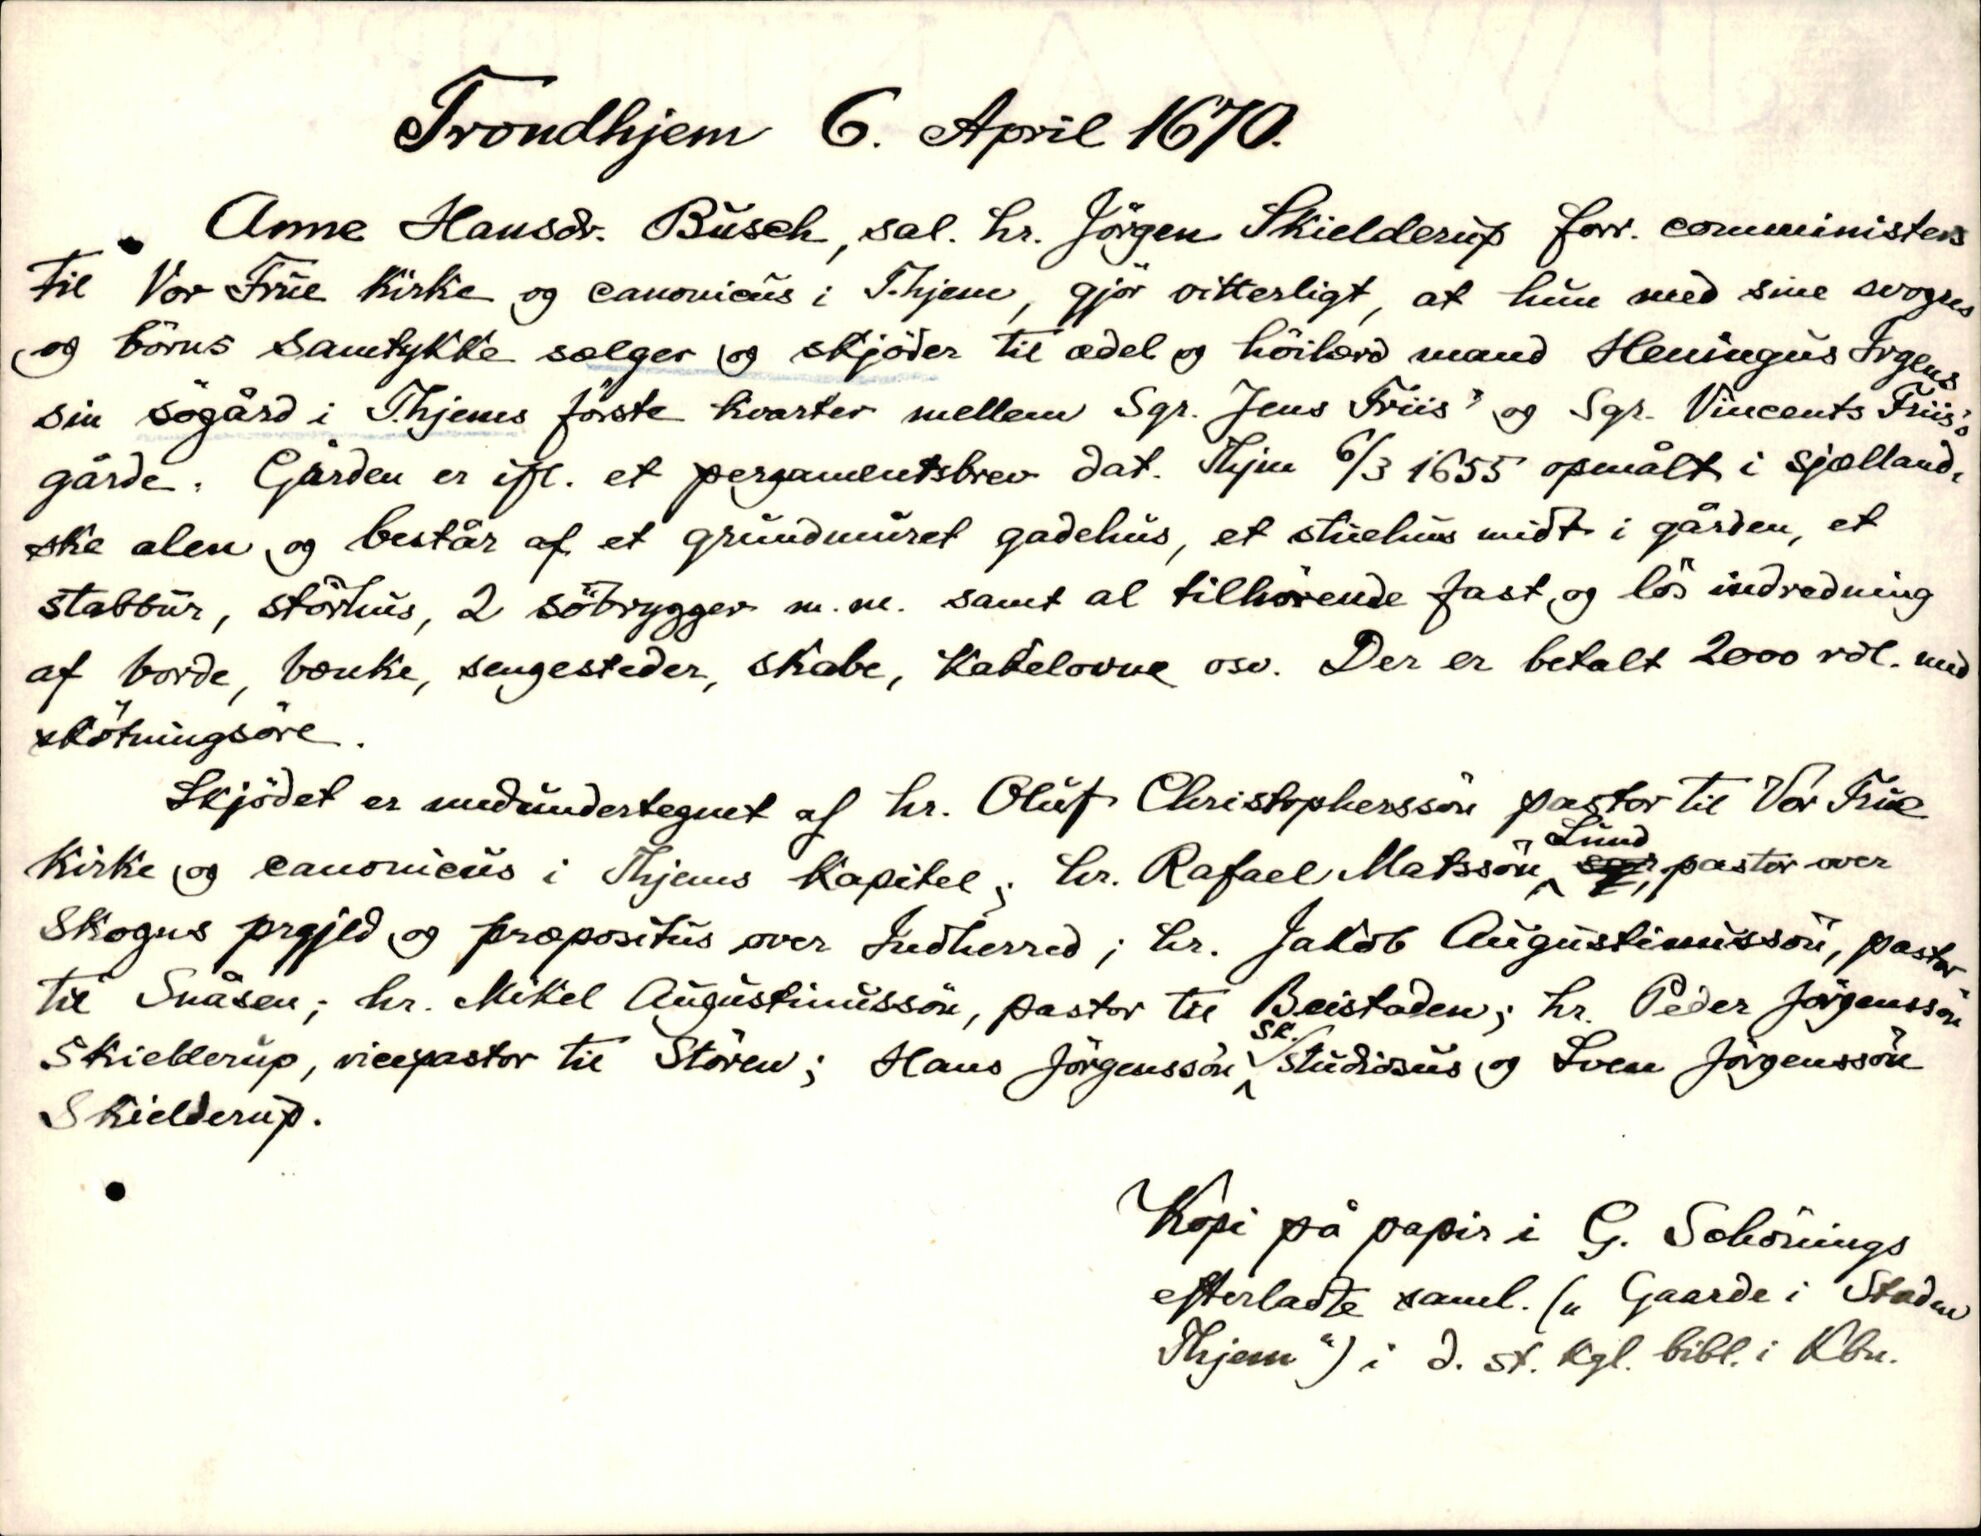 Trondhjem 6. April 1670.
Anne Hansdr. Busch, sal. hr. Jörgen Skielderup forr. comministers
til Vor Frue Kirke og canonicus i T.hjem, gjör vitterligt, at hun med sine svogres
og börns samtykke sælger og skjöder til ædel og höilærd mand Heningus Irgens
sin sögård i T.hjems förste kvarter mellem Sgr. Jens Friis' og Sgr. Vincents Friis's
gårde. Gården er ifl. et pergamentsbrev dat. Thjm 6/3 1655 opmålt i sjælland-
ske alen og består af et grundmuret gadehus, et stuehus midt i gården, et
stabbur, störhus, 2 söbrygger m.m. samt al tilhörende fast og lös indredning
af borde, bænke, sengesteder, skabe, kakelovne osv. Der er betalt 2000 rdl. med
skötningsöre.
Skjödet er medundertegnet af hr. Oluf Christopherssön pastor til Vor Frue
Kirke og canonicus i Thjems kapitel; hr. Rafael Matssön Lund, pastor over
Skogns prgjld og præpositus over Indherred; hr. Jakob Augustinussön, pastor
til Snåsen; hr. Mikel Augustinussön, pastor til Beistaden; hr. Peder Jörgenssön
Skielderup, vicepastor til Stören; Hans Jörgenssön Sk. studiosus og Sven Jörgenssön
Skielderup.
Kopi på papir i G. Schönings
efterladte saml. („Gaarde i Staden
Thjem“) i d. st. kgl. bibl. i Kbn.